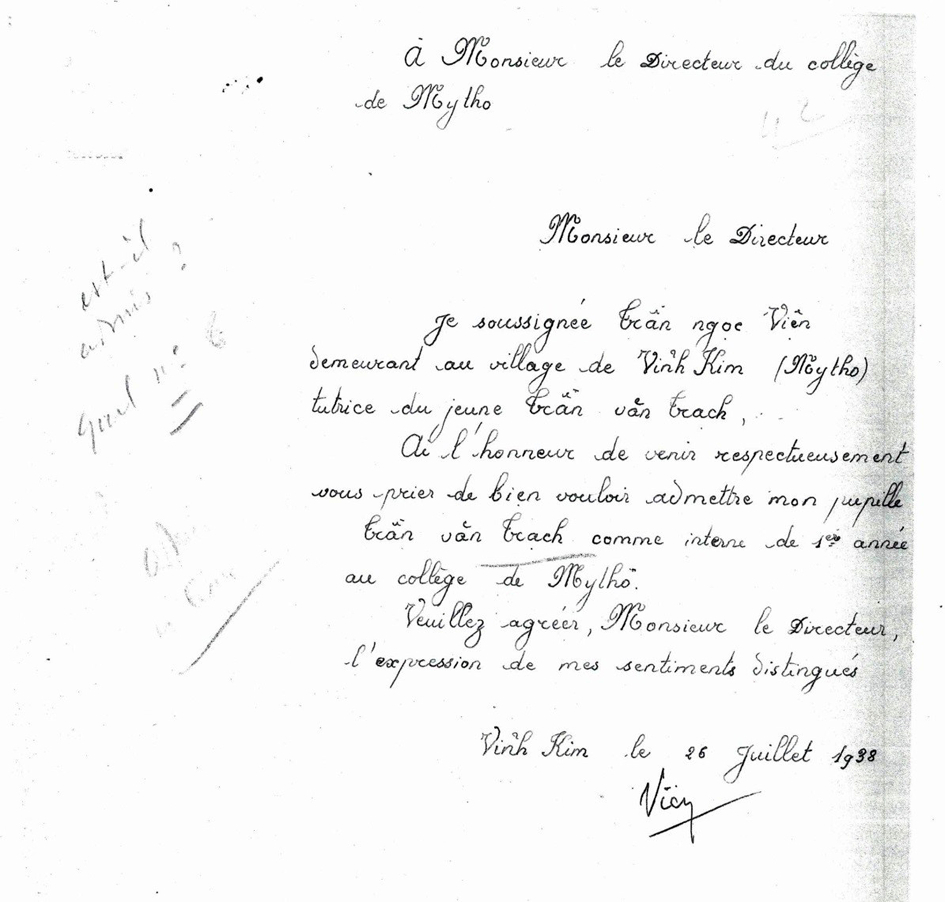 À Monsieur le Directeur du collège
de Mytho
Monsieur le Directeur
est-il
admis ?
Quel n°
Je soussignée Trần ngọc Viên
demeurant au village de Vĩnh Kim (Mytho)
tutrice du jeune Trần văn Trạch,
Ai l'honneur de venir respectueusement
vous prier de bien vouloir admettre mon pupille
Trần văn Trạch comme interne de 1ère année
au collège de Mytho.
Veuillez agréer, Monsieur le Directeur,
l'expression de mes sentiments distingués
Vĩnh Kim le 26 Juillet 1938
Viên